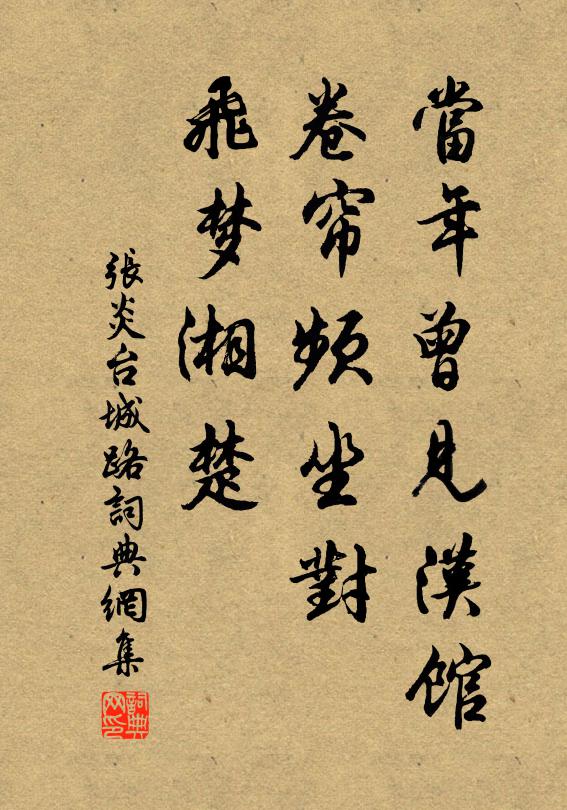 當年曾見漢館
卷帘頻坐對
飛梦湘楚
張炎台城路詞典網集
詞典
网印